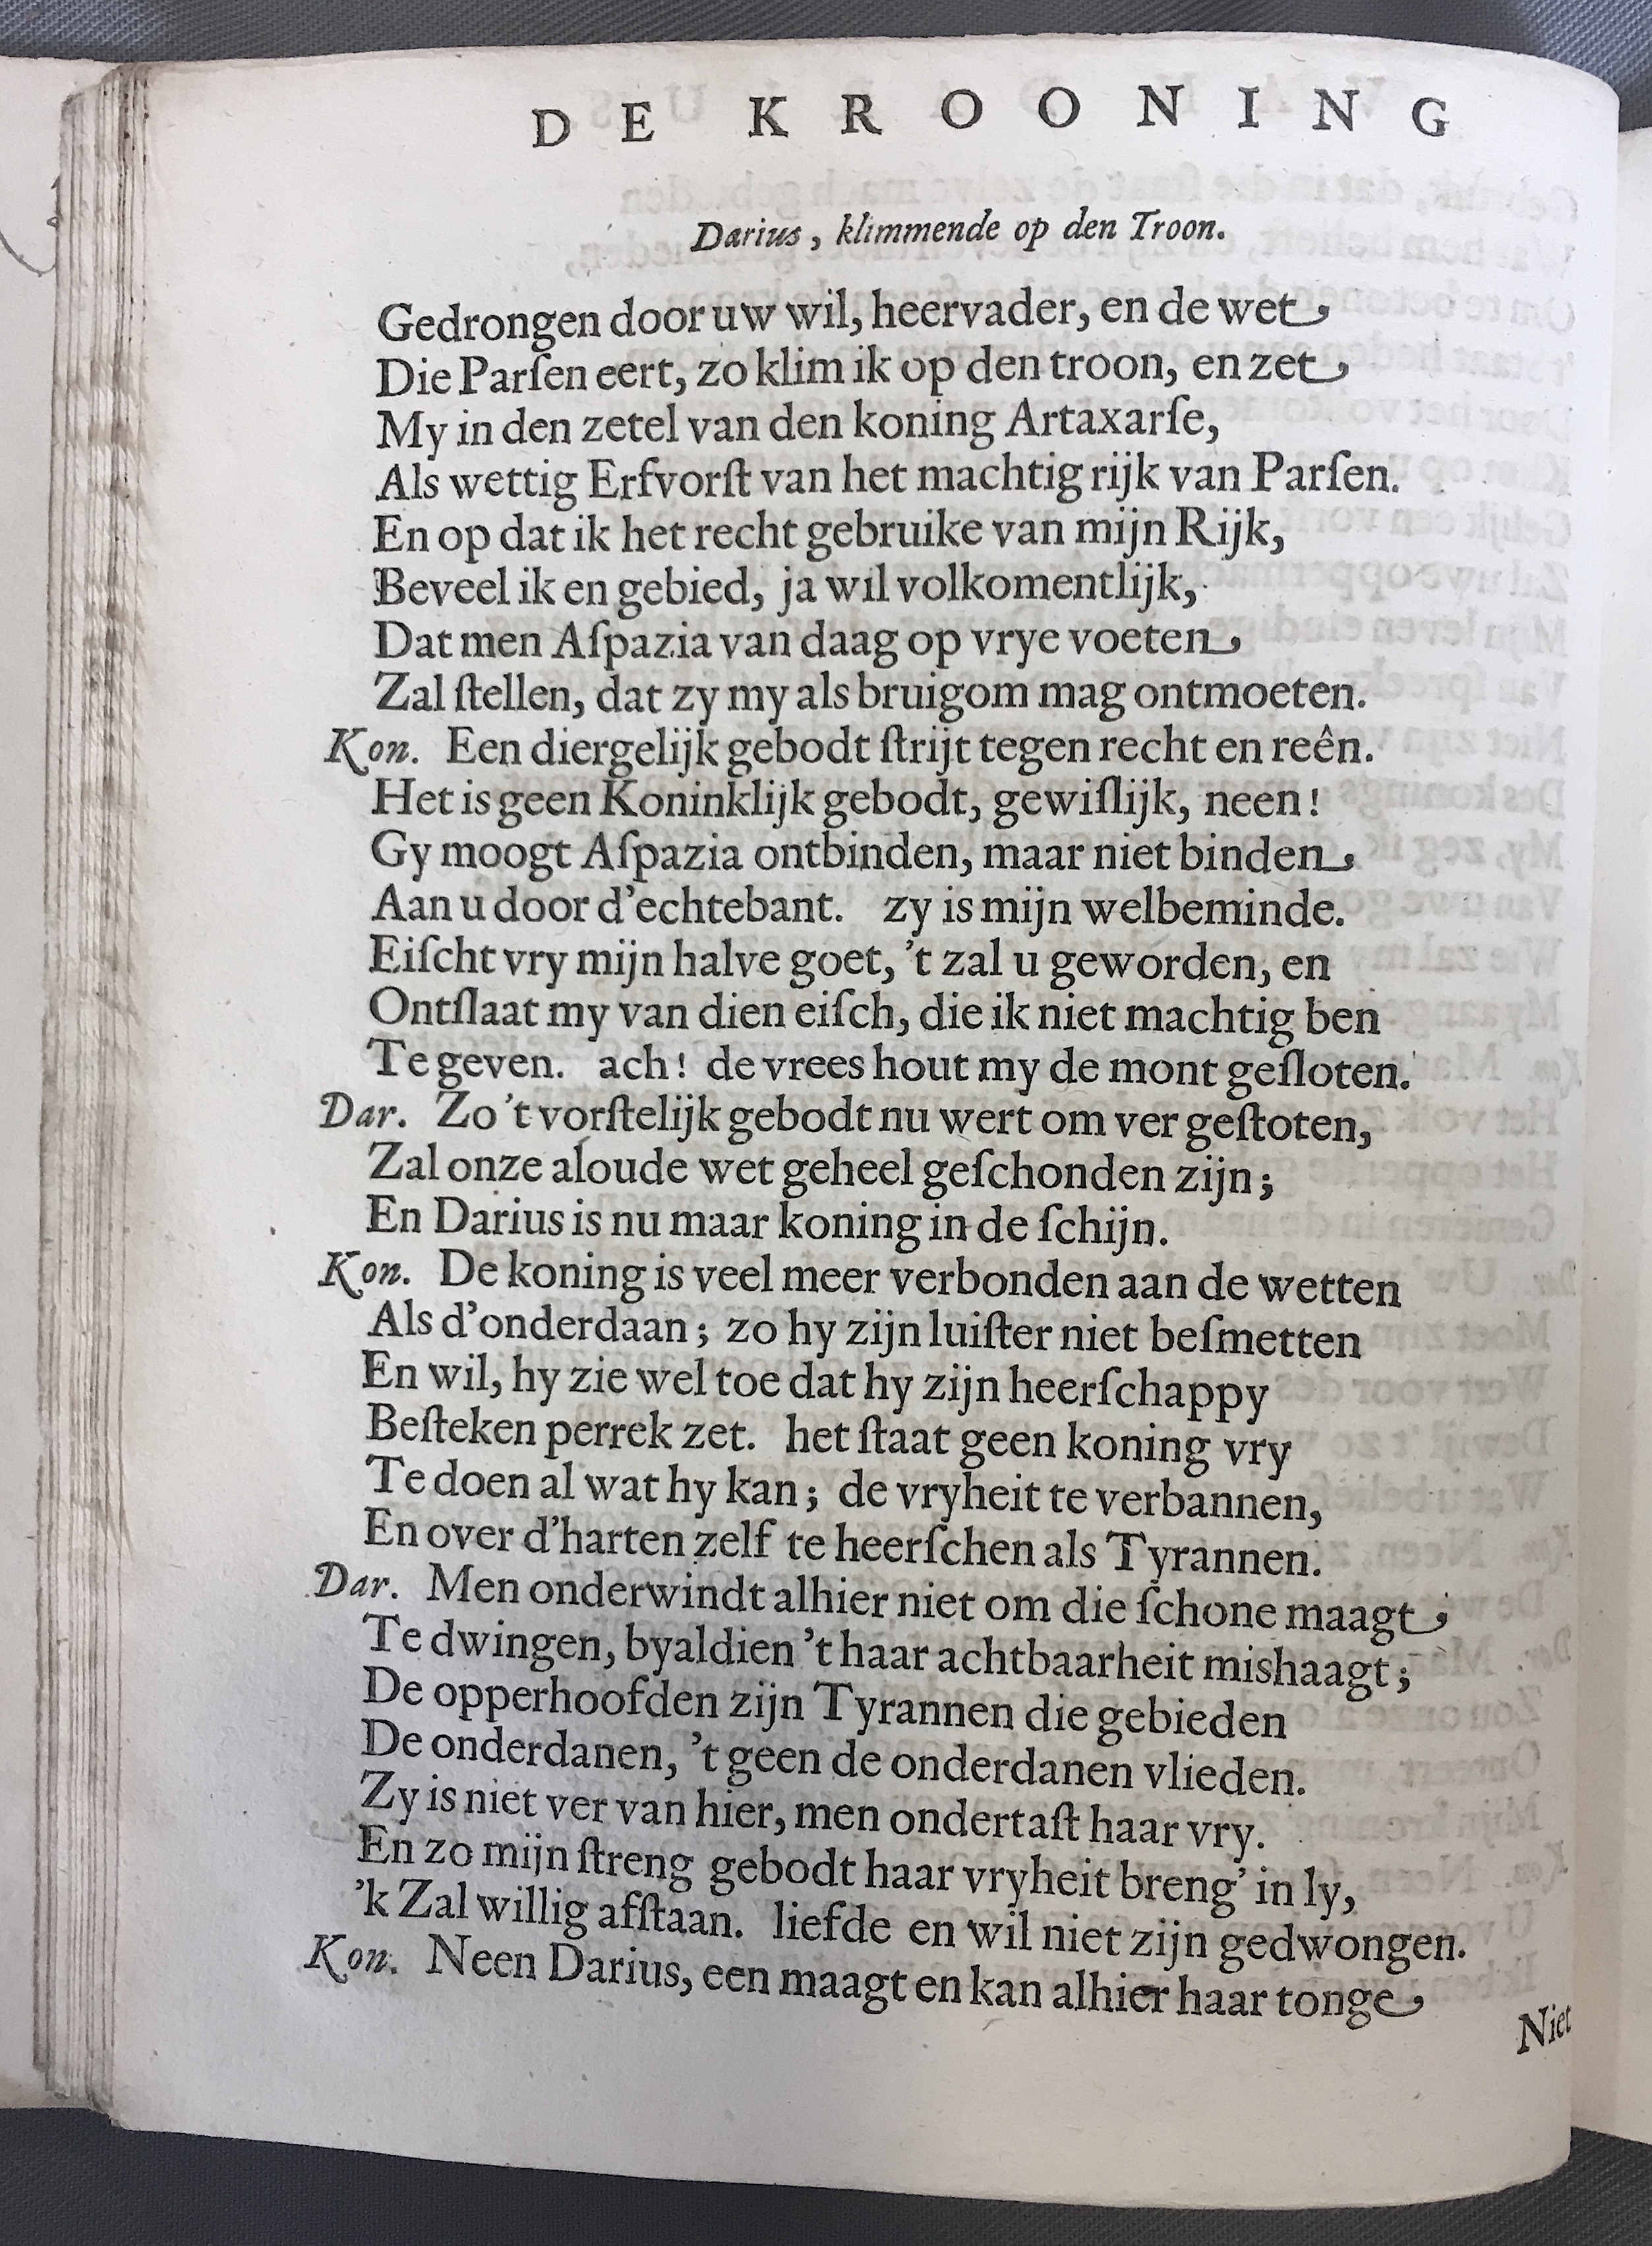 DE KROONING
Darius, klimmende op den Troon.
Gedrongen door uw wil, heervader, en de wet
Die Parſen eert, zo klim ik op den troon, en zet
My in den zetel van den koning Artaxarſe,
Als wettig Erfvorſt van het machtig rijk van Parſen.
En op dat ik het recht gebruike van mijn Rijk,
Beveel ik en gebied, ja wil volkomentlijk,
Dat men Aſpazia van daag op vrye voeten
Zal ſtellen, dat zy my als bruigom mag ontmoeten.
Kon. Een diergelijk gebodt ſtrijt tegen recht en reên.
Het is geen Koninklijk gebodt, gewiſlijk, neen!
Gy moogt Aſpazia ontbinden, maar niet binden
Aan u door d'echtebant. zy is mijn welbeminde.
Eiſcht vry mijn halve goet, 't zal u geworden, en
Ontſlaat my van dien eiſch, die ik niet machtig ben
Te geven. ach! de vrees hout my de mont geſloten.
Dar. Zo 't vorſtelijk gebodt nu wert om ver geſtoten,
Zal onze aloude wet geheel geſchonden zijn;
En Darius is nu maar koning in de ſchijn.
Kon. De koning is veel meer verbonden aan de wetten
Als d'onderdaan; zo hy zijn luiſter niet beſmetten
En wil, hy zie wel toe dat hy zijn heerſchappy
Beſteken perrek zet. het ſtaat geen koning vry
Te doen al wat hy kan; de vryheit te verbannen,
En over d'harten zelf te heerſchen als Tyrannen.
Dar. Men onderwindt alhier niet om die ſchone maagt
Te dwingen, byaldien 't haar achtbaarheit mishaagt;
De opperhoofden zijn Tyrannen die gebieden
De onderdanen, 't geen de onderdanen vlieden.
Zy is niet ver van hier, men ondertaſt haar vry.
En zo mijn ſtreng gebodt haar vryheit breng' in ly,
'k Zal willig afſtaan. liefde en wil niet zijn gedwongen.
Kon. Neen Darius, een maagt en kan alhier haar tonge
Niet